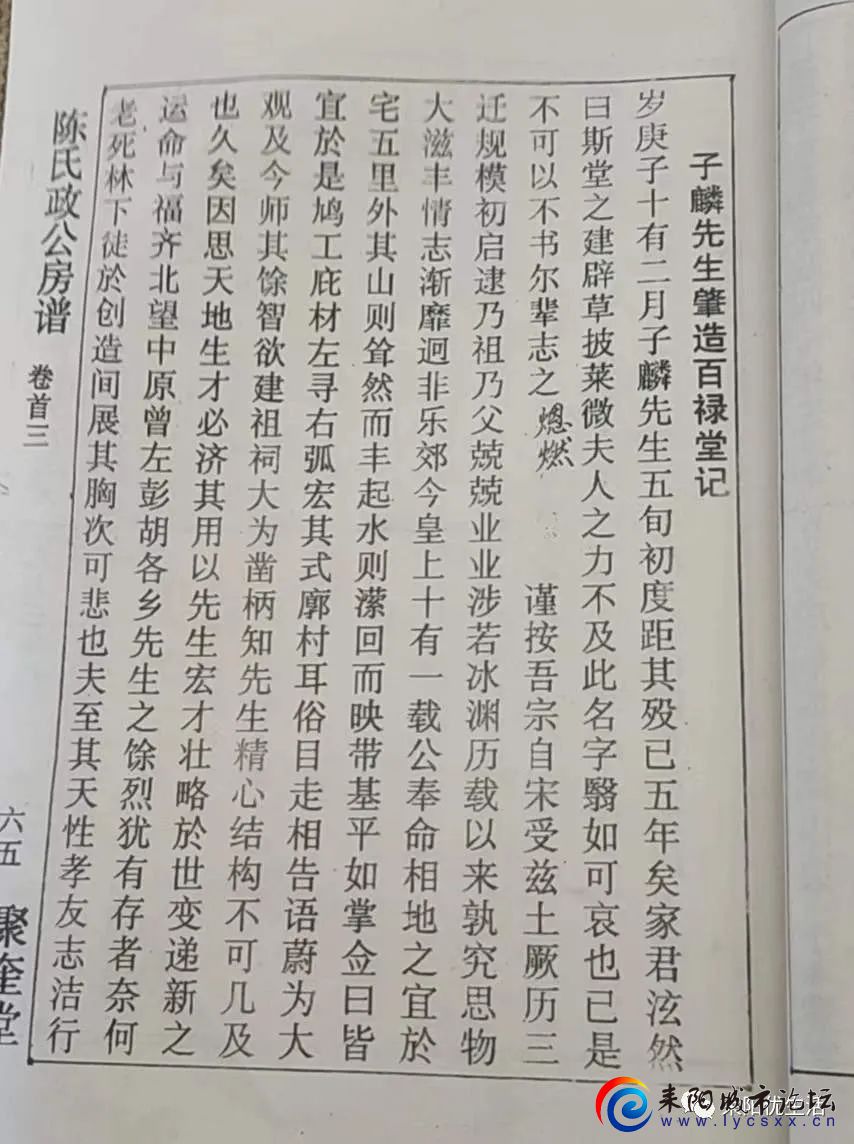 子麟先生肇造百禄堂记
岁庚子十有二月子麟先生五旬初度距其殁已五年矣家君泫然
曰斯堂之建辟草披莱微夫人之力不及此名字翳如可哀也已是
不可以不书尔辈志之燃 谨按吾宗自宋受兹土厥历三
迁规模初启逮乃祖乃父兢兢业业涉若冰渊历载以来孰究思物
大滋丰情志渐靡迥非乐郊今皇上十有一载公奉命相地之宜於
宅五里外其山则耸然而丰起水则潆回而映带基平如掌佥曰皆
宜於是鸠工庇材左寻右弧宏其式廓村耳俗目走相告语蔚为大
观及今师其馀智欲建祖祠大为凿柄知先生精心结构不可几及
也久矣因思天地生才必济其用以先生宏才壮略於世变递新之
运命与福齐北望中原曾左彭胡各乡先生之馀烈犹有存者奈何
老死林下徒於创造间展其胸次可悲也夫至其天性孝友志洁行
陈氏政公房谱
卷首三
六五
聚奎堂
耒阳优生活
耒阳城市论坛
www.lysxx.cn